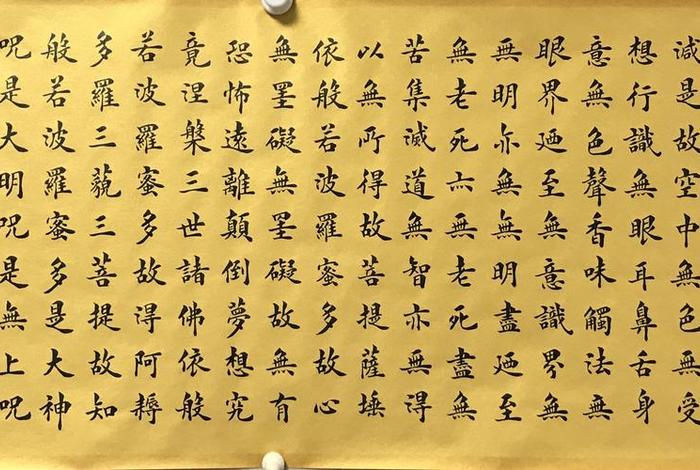 減是故空中無色無受
想行識無眼耳鼻舌身
意無色聲香味觸法無
眼界廼至無意識界無
無明亦無無明盡廼至
無老死亦無老死盡無
苦集滅道無智亦無得
以無所得故菩提薩埵
依般若波羅蜜多故心
無罣礙無罣礙故無有
恐怖遠離顛倒夢想究
竟涅槃三世諸佛依般
若波羅蜜多故得阿耨
多羅三藐三菩提故知
般若波羅蜜多是大神
呪是大明呪是無上呪